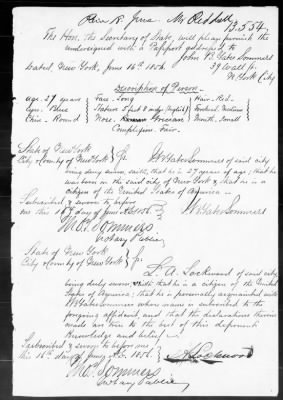 13,554
The Hon. the Secretary of State, will please furnish the
undersigned with a Passport addressed to
John B. Yates Sommers
39 Wall st.
N. York City
Dated, New York, June 16th 1856.
Description of Person.
Age. 27 years Face. Long Hair. Red.
Eyes. Blue Stature 5 feet 8 inches (English) Forehead. Medium
Chin. Round Nose. Grecian Mouth. Small
Complexion. Fair.
State of New York
City & County of New York } ss.
Yates Sommers of said city
being duly sworn, saith, that he is 27 years of age; that he
was born in the said city of New York & that he is a
citizen of the United States of America.
Subscribed & sworn to before
me this 16th day of June 1856
Yates Sommers
Thos. Sommers
Notary Public
State of New York
City & County of New York } ss.
L. A. Lockwood of said city
being duly sworn, saith that he is a citizen of the United
States of America; that he is personally acquainted with
Yates Sommers whose name is subscribed to the
foregoing affidavit, and that the declarations therein
made are true to the best of this deponent's
knowledge and belief
Subscribed & sworn to before me
this 16th day of June A.D. 1856.
Lockwood
Thos. Sommers
Notary Public